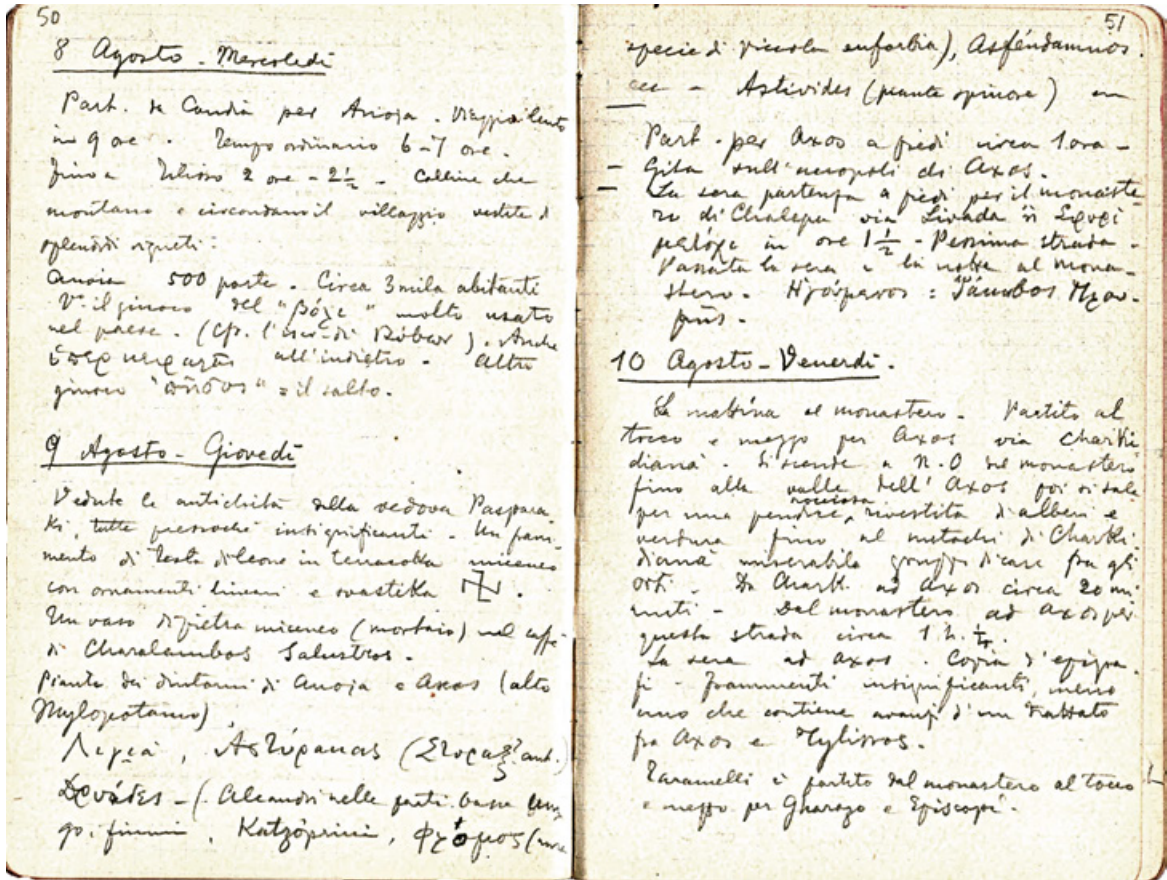 50
8 Agosto - Mercoledì
Part. da Candia per Anoja. Viaggio lento
in 9 ore. Tempo ordinario 6-7 ore.
Fino a Tilisso 2 ore - 2½ - Colline che
montano e circondano il villaggio vestite di
splendidi vigneti:
Anoia 500 porte. Circa 3mila abitanti
V'è il giuoco del " " molto usato
nel paese. (Cfr. l' di ). Anche
all'indietro - Altro
giuoco " " = il salto.
9 Agosto - Giovedì
Vedute le antichità della vedova Paspara-
ki, tutte pressochè insignificanti - Un fram-
mento di testa di leone in terracotta miceneo
con ornamenti lineari e svastika 卍.
Un vaso di pietra miceneo (mortaio) nel caffè
di Charalambos Salustros.
Piante dei dintorni di Anoja e Axos (alto
Mylopotamo)
, Ἀστύρακας ( ant.)
Δρυάδες - (Oleandri nelle parti basse lun-
go i fiumi, Katzóprini, (una
51
specie di piccola euforbia), Asféndamnos.
ecc - Astivides (piante spinose)
Part. per Axos a piedi circa 1 ora -
- Gita sull'acropoli di Axos.
- La sera partenza a piedi per il monaste-
ro di Chalepa via Livada
in ore 1½ - Pessima strada -
Passata la sera e la notte al mona-
stero. Ἡγούμενος :
10 Agosto - Venerdì.
La mattina al monastero. Partito al
tocco e mezzo per Axos via Charki
dianà. Si scende a N.O del monastero
fino alla valle dell'Axos poi si sale
per una pendice rocciosa, rivestita d'alberi e
verdura fino al metochi di Charki-
dianà miserabile gruppo di case fra gli
orti - Da Chark. ad Axos circa 20 mi
nuti - Dal monastero ad Axos per
questa strada circa 1 h. ¼.
La sera ad Axos. Copia d'epigra-
fi - Frammenti insignificanti, meno
uno che contiene avanzi d'un trattato
fra Axos e Tylissos.
Taramelli è partito dal monastero al tocco
e mezzo per Gharazo e Episcopi.